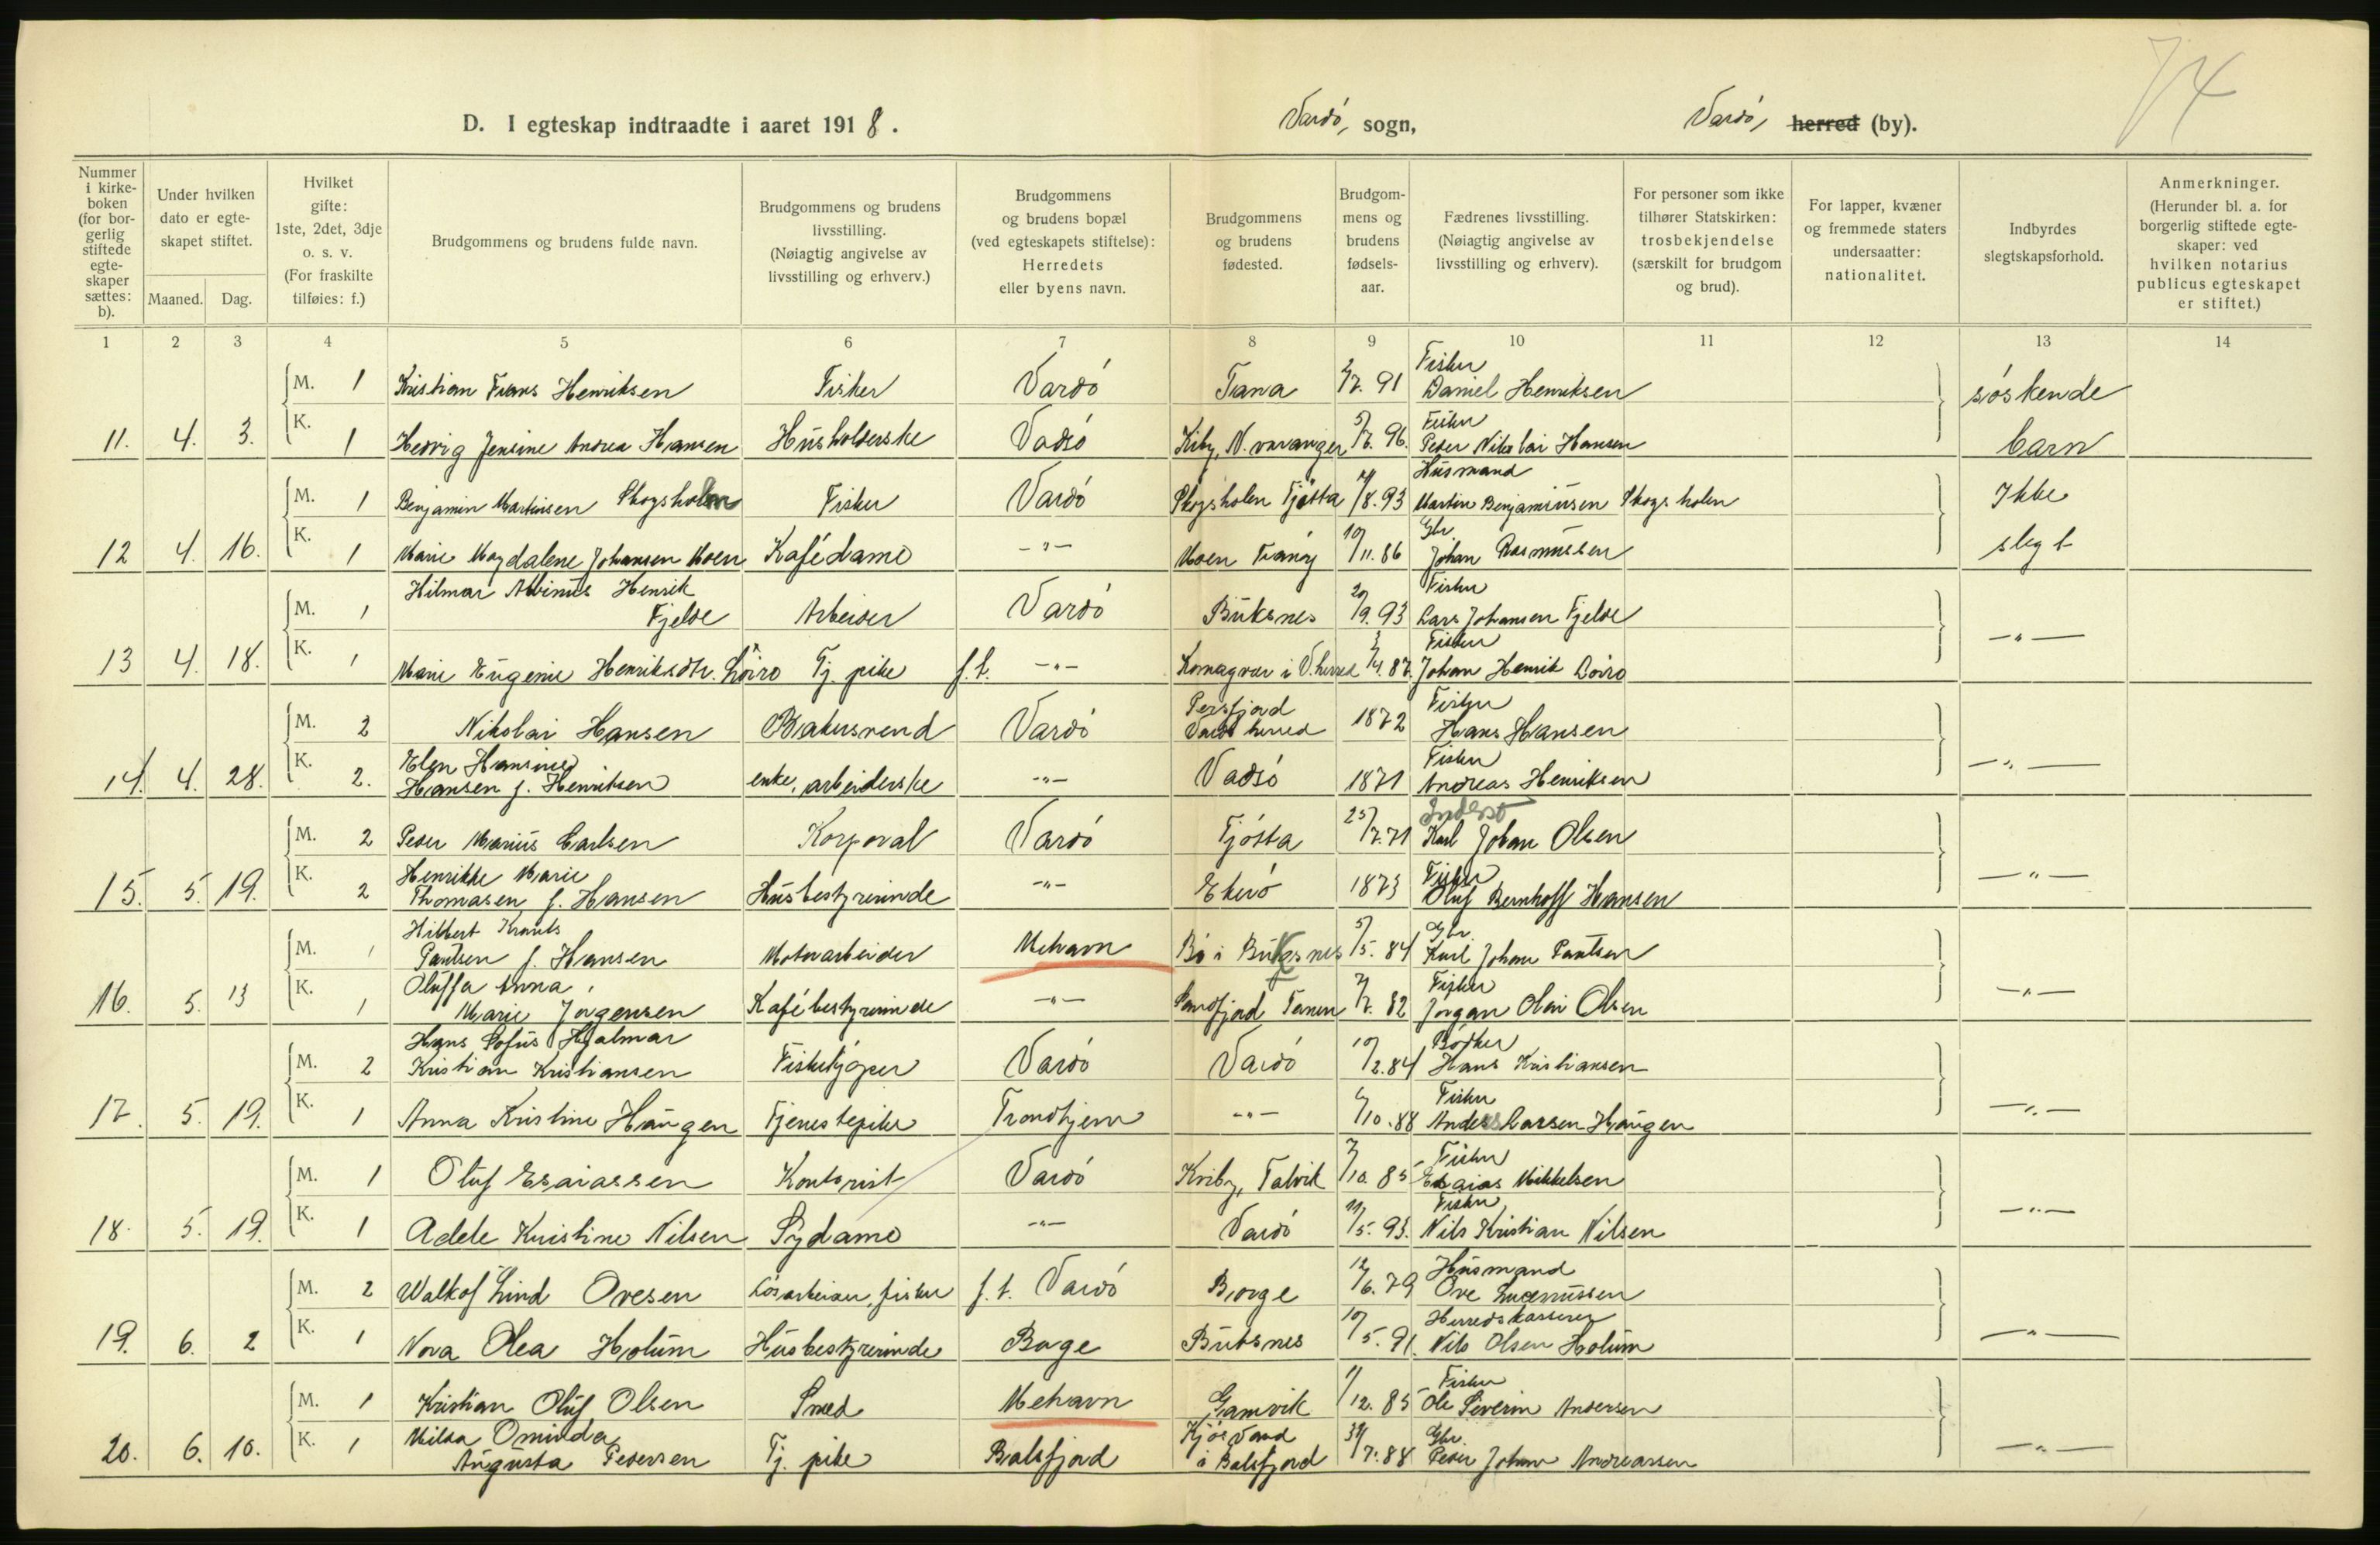 74
D. I egteskap indtraadte i aaret 1918. Vardö, sogn, Vardö, herred (by).
Nummer i kirkeboken (for borgerlig stiftede egteskaper sættes: b).
Under hvilken dato er egteskapet stiftet.
Maaned. Dag.
Hvilket gifte: 1ste, 2det, 3dje o. s. v. (For fraskilte tilføies: f.)
Brudgommens og brudens fulde navn.
Brudgommens og brudens livsstilling. (Nøiagtig angivelse av livsstilling og erhverv.)
Brudgommens og brudens bopæl (ved egteskapets stiftelse): Herredets eller byens navn.
Brudgommens og brudens fødested.
Brudgommens og brudens fødselsaar.
Fædrenes livsstilling. (Nøiagtig angivelse av livsstilling og erhverv).
For personer som ikke tilhører Statskirken: trosbekjendelse (særskilt for brudgom og brud).
For lapper, kvæner og fremmede staters undersaatter: nationalitet.
Indbyrdes slegtskapsforhold.
Anmerkninger. (Herunder bl. a. for borgerlig stiftede egteskaper: ved hvilken notarius publicus egteskapet er stiftet.)
1 2 3 4 5 6 7 8 9 10 11 12 13 14
Fisker
M. 1 Kristian Frans Henriksen Fisker Vardö Tana 2/7. 91 Daniel Henriksen söskende
Fisker
11. 4. 3. K. 1 Hedvig Jensine Andrea Hansen Husholderske Vadsö Kiby, N. varanger 5/7. 96. Peder Nikolai Hansen barn
Husmand
M. 1 Benjamin Martinsen Skogsholm Fisker Vardö Skogsholen Tjötta /8. 93 Martin Benjaminsen Skogsholen Ikke
Gbr.
12 4. 16. K. 1 Marie Magdalene Johansen Moen Kafédame -"- Moen Tranöy 10/11. 86 Johan Rasmussen slegt
Hilmar Albinus Henrik Fisker
M. 1 Fjelde Arbeider Vardö Buksnes 20/9. 93 Lars Johansen Fjelde
Fisker
13 4. 18. K. 1 Marie Eugenie Henriksdtr. Loiro Tj. pike f.t. -"- Komagvær i V. herred 3/4. 87. Johan Henrik Loiro -"-
Persfjord Fisker
M. 2 Nikolai Hansen Bakersvend Vardö Vardö herred 1872 Hans Hansen
Elen Hansine Fisker
14. 4. 28. K. 2. Hansen f. Henriksen enke, arbeiderske -"- Vadsö 1871 Andreas Henriksen -"-
Inderst
M. 2 Peder Marius Carlsen Korporal Vardö Tjötta 25/7. 71 Karl Johan Olsen
Henrikke Marie Fisker
15. 5. 19. K. 2 Thomasen f. Hansen Husbestyrerinde -"- Ekerö 1873 Oluf Bernhoff Hansen -"-
Hilbert Krants Gbr
M. 1 Paulsen f. Hansen Motorarbeider Mehavn Bö i Buksnes 5/5. 84 Karl Johan Paulsen
Oluffa Anna Fisker
16. 5. 13 K. 1 Marie Jorgensen Kafébestyrerinde -"- Sandfjord Tanen 2/7. 82 Jorgan Olai Olsen -"-
Hans Sofus Hjalmar Bödker
M. 2 Kristian Kristiansen Fiskekjöper Vardö Vardö 10/2. 84 Hans Kristiansen
Fisker
17. 5. 19. K. 1 Anna Kristine Haugen Tjenestepike Trondhjem -"- 6/10. 88 Anders Larsen Haugen -"-
Fisker
M. 1 Oluf Esaiassen Kontorist Vardö Kviby, Talvik 7/10. 85 Esaias Mikkelsen
Fisker
18. 5. 19. K. 1 Adele Kristine Nilsen Sydame -"- Vardö 11/5. 93. Nils Kristian Nilsen -"-
Husmand
M. 2 Walkof Lind Ovesen Lösarbeider, fisker f.t. Vardö Borge 12/6. 79 Ove
Herredskasserer
19. 6. 2 K. 1 Nora Olea Holum Husbestyrerinde Borge Buksnes 10/5. 91. Nils Olsen Holum -"-
Fisker
M. 1 Kristian Oluf Olsen Smed Mehavn Gamvik 1/12. 85 Ole Severin Andersen
Milda Ominda Kjösvand Gbr.
20. 6. 10. K. 1 Augusta Pedersen Tj. pike Balsfjord i Balsfjord 31/7. 88 Peder Johan Andreassen -"-